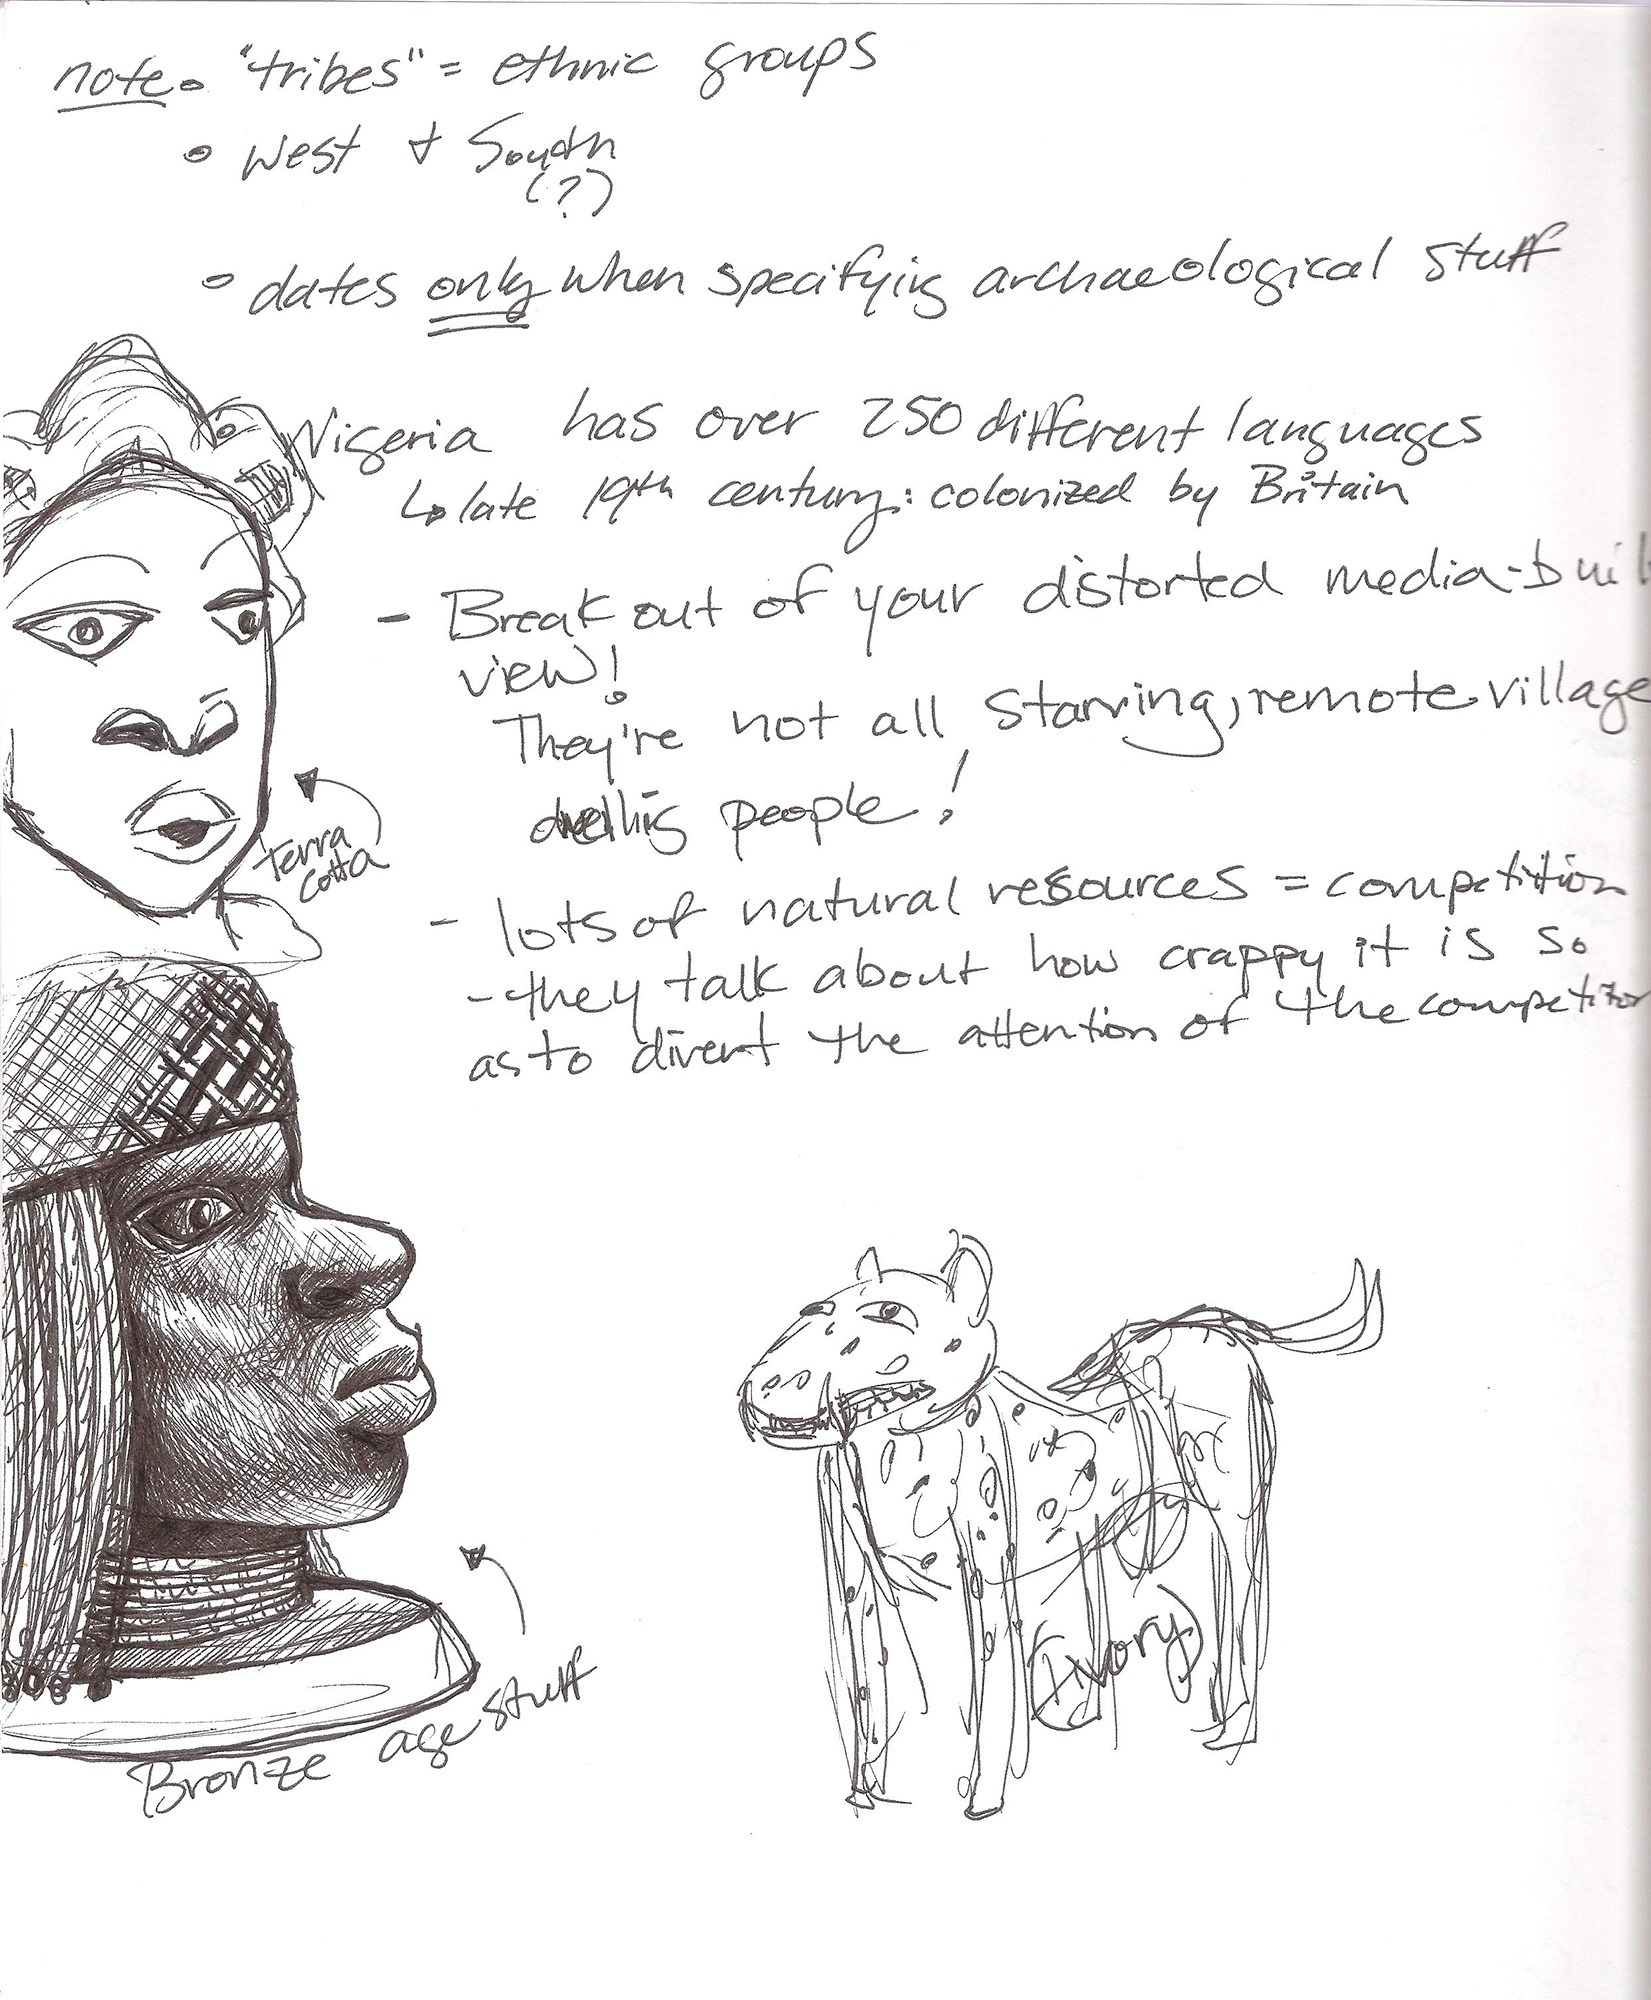 note • "tribes" = ethnic groups
• West + South
(?)
• dates only when specifying archaeological stuff
Nigeria has over 250 different languages
↳ late 19th century: colonized by Britain
- Break out of your distorted media-buil
view!
They're not all starving, remote village
dwelling people!
terra
cotta
- lots of natural resources = competition
- they talk about how crappy it is so
as to divert the attention of the competitor
(Ivory)
Bronze age stuff